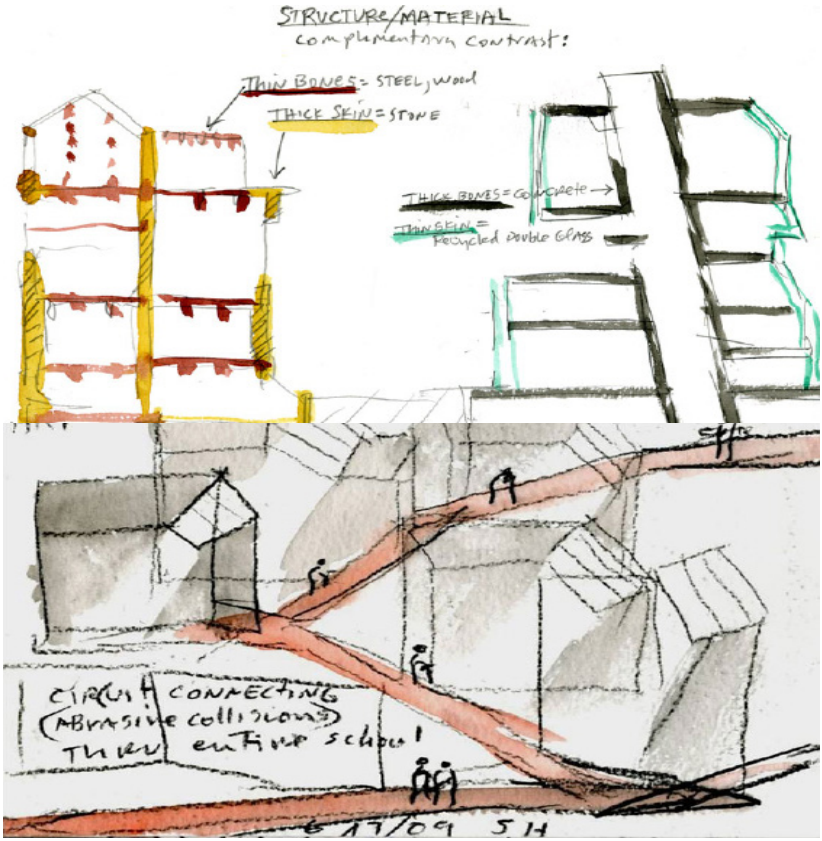 STRUCTURE/MATERIAL
complementary contrast:
THIN BONES = STEEL, wood
THICK SKIN = STONE
THICK BONES = CONCRETE →
THIN SKIN =
Recycled Double Glass
CIRCUIT CONNECTING
(ABRASIVE collisions)
THRU entire school
17/09 SH